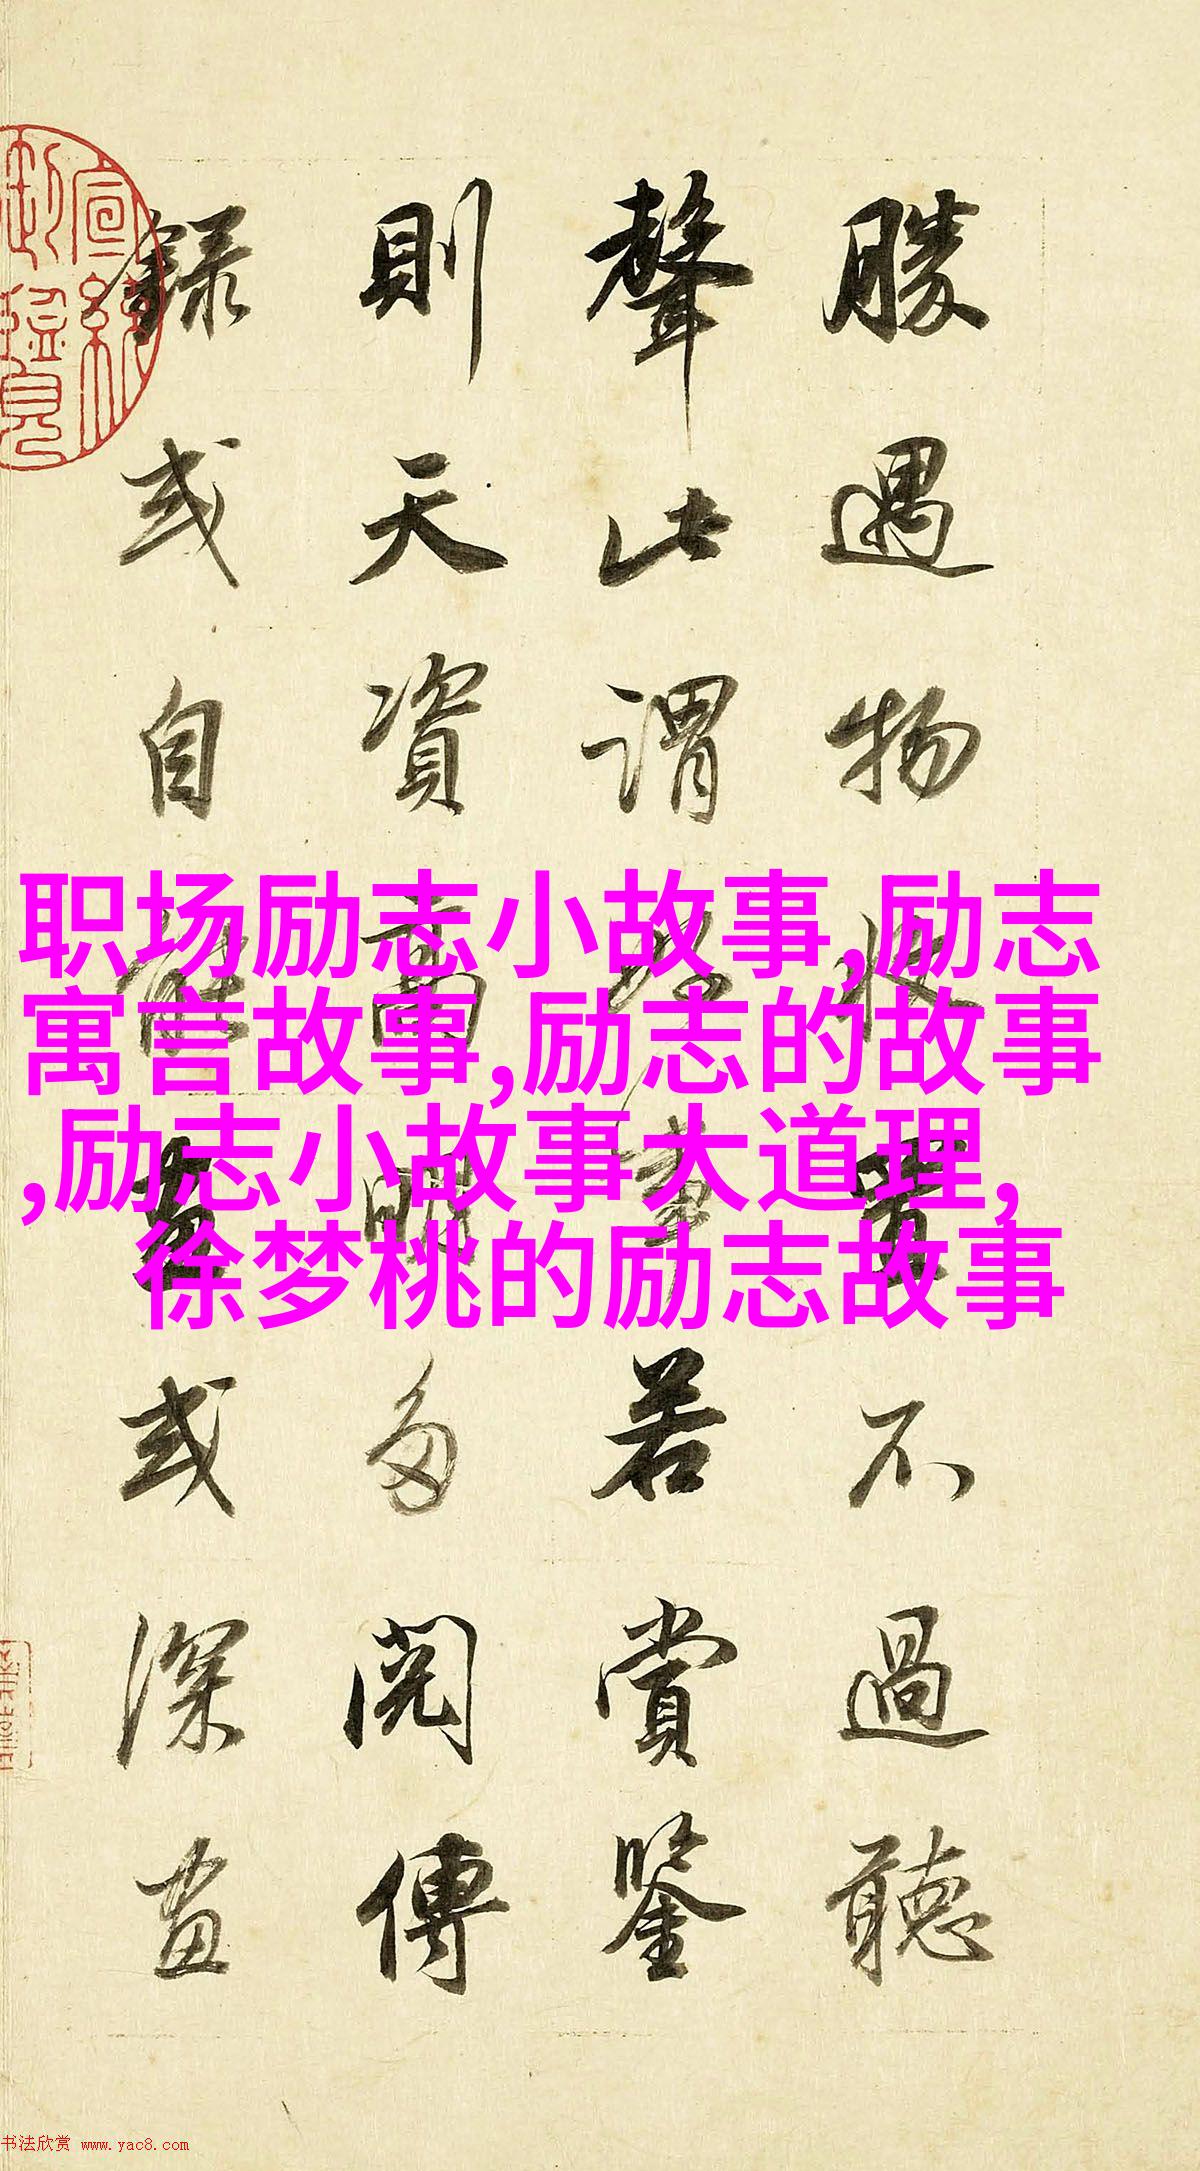 勝遇物收置不過聽
聲此謂好事若賞鑒
則天資高明多閱傳
錄或自能畫或深畫
职场励志小故事,励志
寓言故事,励志的故事
,励志小故事大道理,
徐梦桃的励志故事
书法欣赏 www.yac8.com